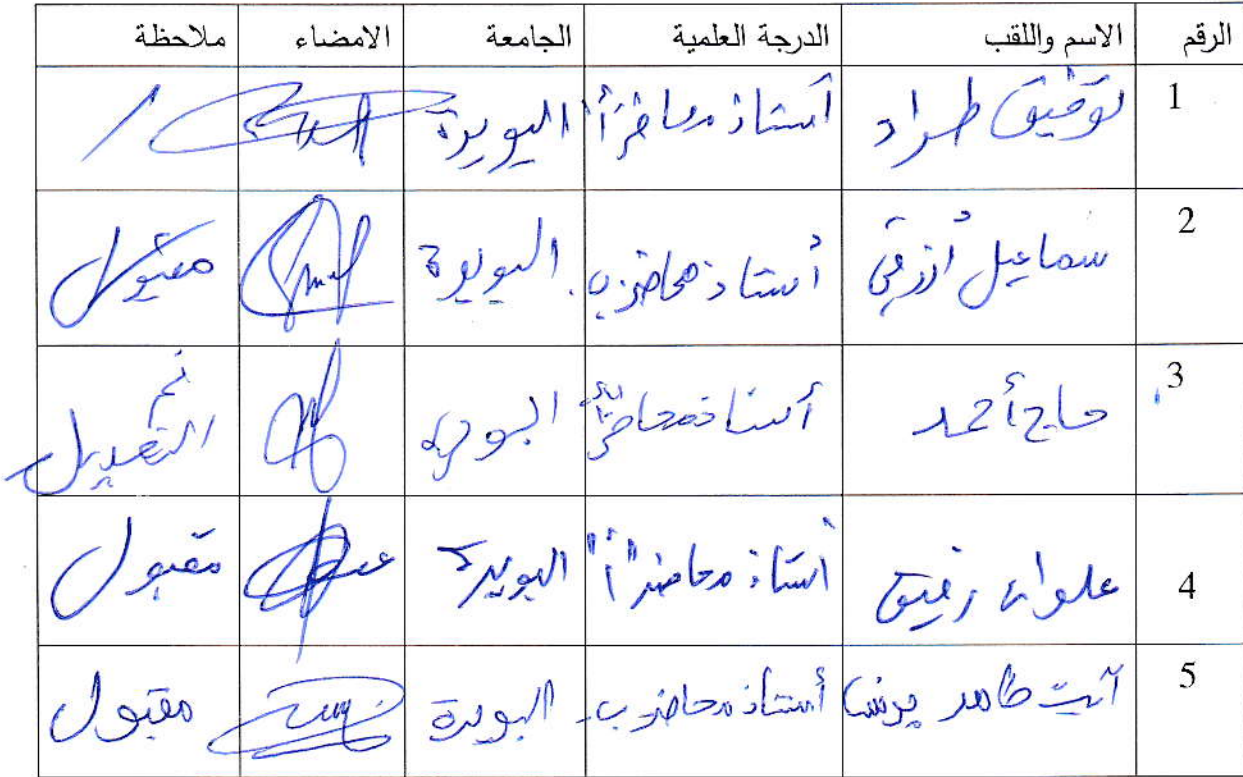 الرقم الاسم واللقب الدرجة العلمية الجامعة الامضاء ملاحظة
1 توفيق طراد أستاذ محاضر "أ" البويرة /
2 سماعيل أزرقي أستاذ محاضر ب البويرة مقبول
3 حاج أحمد أستاذ محاضر البويرة تم
التعديل
4 علوان رفيق أستاذ محاضر "أ" البويرة مقبول
5 آيت طاهر أستاذ محاضر ب البويرة مقبول